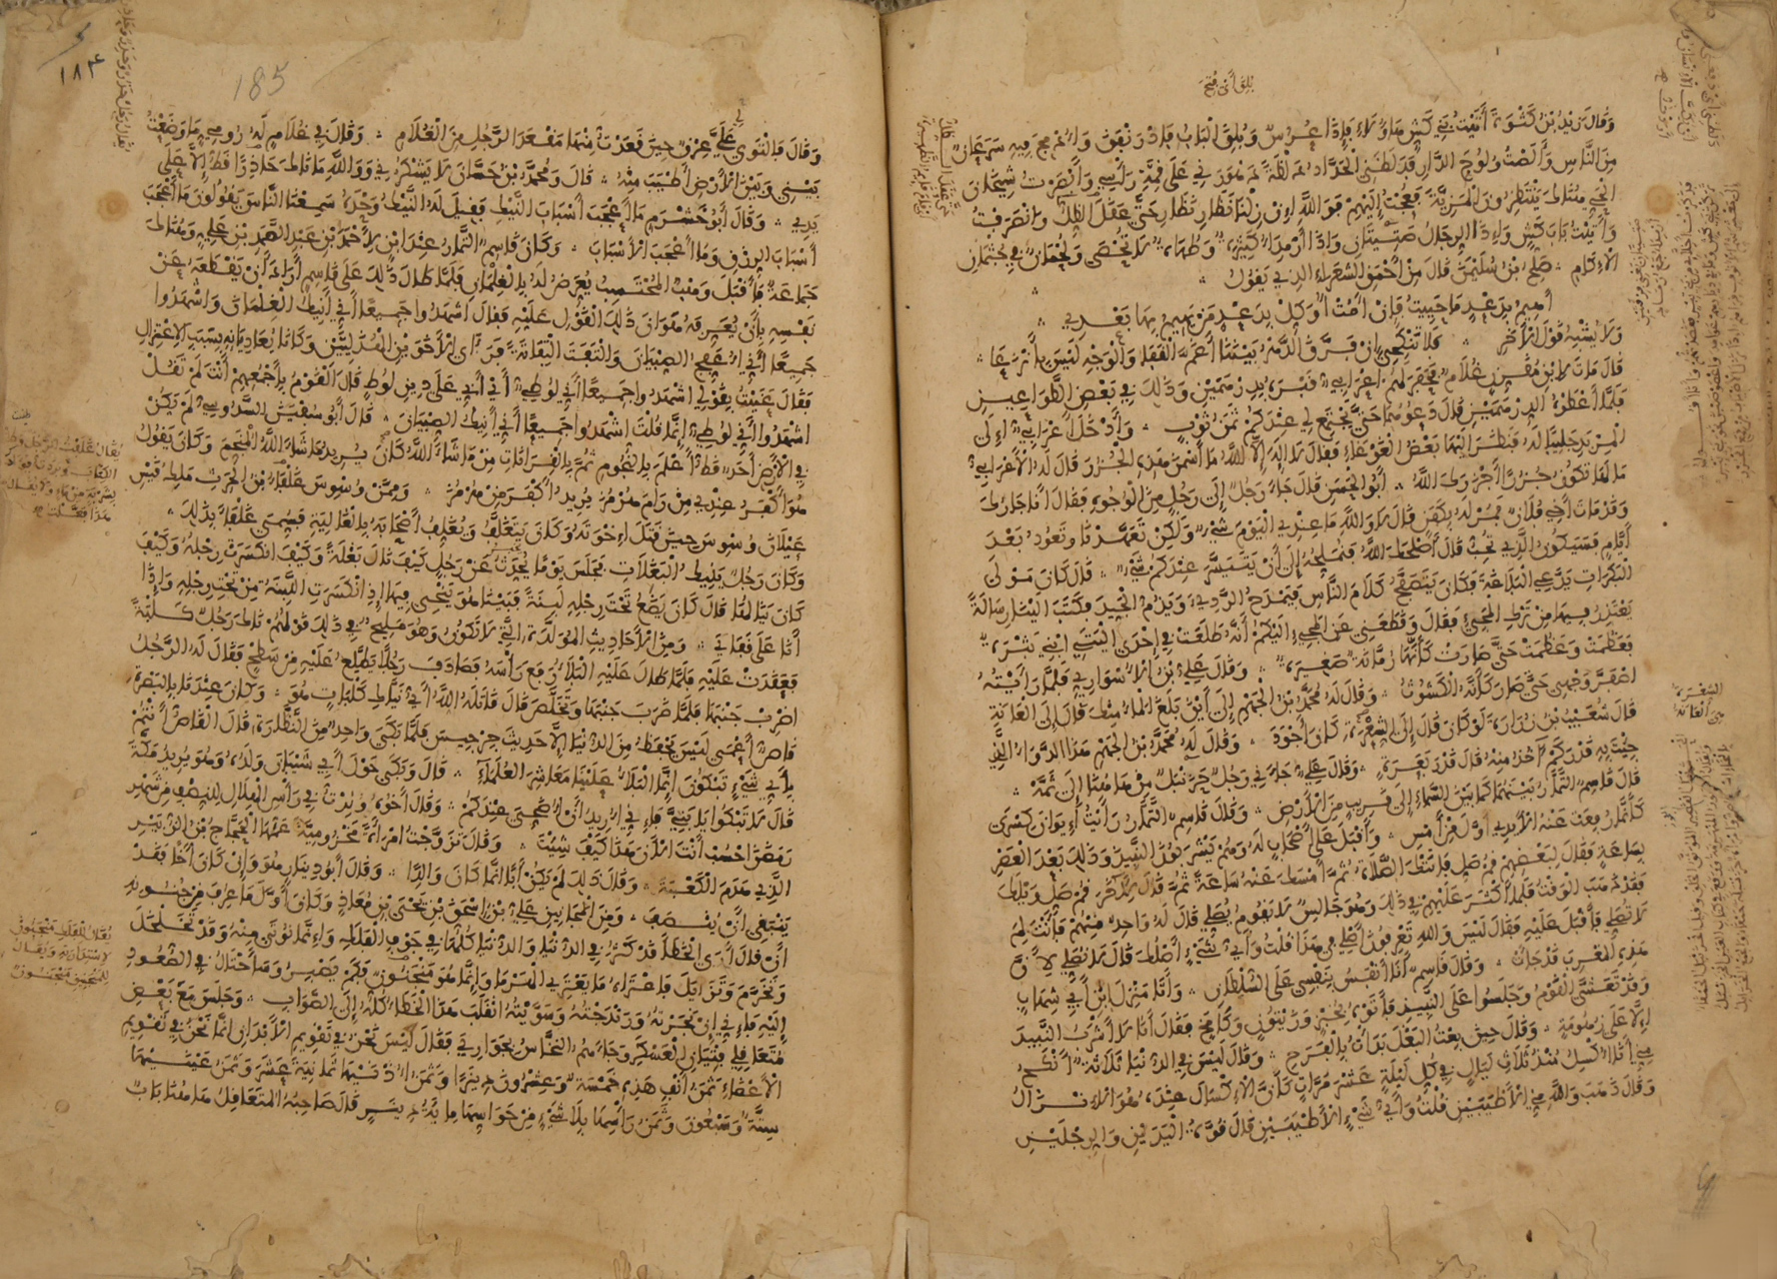 بلق أي فتح
وقال يزيد بن كثوة أتيت بني كش هاؤلاء فإذا عرس وبلق الباب فادرنفق وادمج فيه سرعان
من الناس وألصت ولوج الدار فدلظني الحداد دلظة دهورني على قمة رأسي وأبصرت شيخان
الحي هناك ينتظرون المزية فعجت إليهم فوالله إن زلنا نظار نظار حتى عقل الظل وانصرفت
وأتيت باب كش وإذا الرجال صتيتان وإذا أرمداء كثيرة وطهاة لا تحصى ولحمان في جثمان
الإكام صلح بن سليمن قال من أحمق الشعراء الذي يقول
أهيم بدعد ما حييت فإن أمت أوكل بدعد من يهيم بها بعدي
ولا يشبه قول الآخر فلا تنكحي إن فرق الدهر بيننا أغم القفا والوجه ليس بأنزعا
قال مات لابن مقرن غلام فحفر لهم أعرابي قبره بدرهمين وذلك في بعض الطواعين
فلما أعطوه الدرهمين قال دعوهما حتى يجتمع لي عندكم ثمن ثوب وأدخل أعرابي إلى
المربد جليبا له فنظر إليها بعض الغوغاء فقال لا إله إلا الله ما أسمن هذه الجزر قال له الأعرابي
ما لها تكون جزرا أجزرك الله أبو الحسن قال جاء رجل إلى رجل من الوجوه فقال أنا جارك
وقد مات أخي فلان فمر له بكفن قال لا والله ما عندي اليوم شيء ولكن تعهدنا وتعود بعد
أيام فسيكون الذي تحب قال أصلحك الله فنملحه إلى أن يتيسر عندكم شيء قال كان مولى
البكرات يدعي البلاغة وكان يتصفح كلام الناس فيمدح الردي ويذم الجيد فكتب إلينا رسالة
يعتذر فيها من ترك المجيء فقال وقطعني عن المجيء إليكم أنه طلعت في إحدى أليتي ابني بثرة
فعظمت وعظمت حتى صارت كأنها رمانة صغيرة وقال علي بن الأسواري فلما رأيته
اصفر وجهي حتى صار كأنه الكشوث وقال له محمد بن الجهم إلى أين بلغ الماء منك قال إلى العانة
قال شعيب بن زرارة لو كان قال إلى الشعرة كان أجود وقال له محمد بن الجهم هذا الدواء الذي
جئت به قدر كم آخذ منه قال قدر بعرة وقال علي جاءني رجل حزنبل من هاهنا إلى ثمة
قال قاسم التمار بينهما كما بين السماء إلى قريب من الأرض وقال قاسم التمار رأيت إيوان كسرى
كأنما رفعت عنه الأيدي أول من أمس وأقبل على أصحاب له وهم يشربون النبيذ وذلك بعد العصر
بساعة فقال لبعضهم قم صل فاتتك الصلاة ثم أمسك عنه ساعة ثم قال لآخر قم صل ويلك
فقد ذهب الوقت فلما أكثر عليهم في ذلك وهو جالس لا يقوم يصلي قال له واحد منهم فأنت لم
لا تصلي فأقبل عليه فقال ليس والله تعرفون أصلي في هذا قلت وأي شيء أصلك قال لا نصلي لأن
هذه المغرب قد جاءت وقال قاسم أنا أنفس بنفسي على السلطان وأتا منزل ابن أبي شهاب
وقد تعشى القوم وجلسوا على النبيذ فأتوه بخبز وزيتون وكامخ فقال أنا لا أشرب النبيذ
إلا على زهومة وقال حين بعت البغل بدأت بالسرج وقال ليس في الدنيا ثلاثة أنكح
مني أنا أكسل منذ ثلاث ليال في كل ليلة عشر مرات كأن الإكسال عنده هو الإنزال
وقال ذهب والله مني الأطيبين قلت وأي شيء الأطيبين قال قوة اليدين والرجلين
١٨٤
185
وقال فالتوى علي عرق حين قعدت منها مقعد الرجل من الغلام وقال في غلام له رومي ما وضعت
بيني وبين الأرض أطيب منه قال ومحمد بن حسان لا يشكرني ووالله ما ناك حادرا قط إلا على
يدي وقال أبو خشرم ما أعجب أسباب النيك فقيل له النيك وحده سمعنا الناس يقولون ما أعجب
أسباب الرزق وما أعجب الأسباب وكان قاسم التمار عند ابن لأحمد بن عبد الصمد بن علي وهناك
جماعة فأقبل وهب المحتسب يعرض له بالغلمان فلما طال ذلك على قاسم أراد أن يقطعه عن
نفسه بأن يعرفه هوان ذلك القول عليه فقال اشهدوا جميعا أني أنيك الغلمان واشهدوا
جميعا أني أعفج الصبيان والتفت التفاتة فرأى الأخوين الهذليين وكانا يعاديانه بسبب الاعتزال
فقال عنيت بقولي اشهدوا جميعا أني لوطي أي أني على دين لوط قال القوم بأجمعهم أنت لم تقل
اشهدوا أني لوطي إنما قلت اشهدوا جميعا أني أنيك الصبيان قال أبو سفين السدوسي لم يكن
في الأرض أحد قط أعلم بالنجوم ثم بالقرانات من ما شاء الله كان يريد ما شاء الله المنجم وكان يقول
هو أكفر عندي من رام هرمز يريد أكفر من هرمز وممن وسوس غلفاء بن الحرث ملك قيس
عيلان وسوس حين قتل إخوته وكان يتغلف ويغلف أصحابه بالغالية فسمي غلفاء بذلك
وكان رجل ينيك البغلات فجلس يوما يحدث عن رجل كيف نال بغلة وكيف انكسرت رجله وكيف
كان نالها قال كان يضع تحت رجله لبنة فبينا هو ينحي فيها إذ انكسرت اللبنة من تحت رجله وإذا
أنا على قفاي ومن الأحاديث المولدة التي لا تكون وهو مليح في ذلك قولهم ناك رجل كلبة
فعقدت عليه فلما طال عليه البلاء رفع رأسه فصادف رجلا يطلع عليه من سطح فقال له الرجل
اضرب جنبها فلما ضرب جنبها وتخلص قال قاتله الله أي نياك كلبات هو وكان عندنا بالبصرة
قاص أعمى ليس يحفظ من الدنيا إلا حديث جرجيس فلما بكى واحد من النظارة قال القاص أنتم
بأي شيء تبكون إنما البلاء علينا معاشر العلماء قال وبكى حول أبي شيبان ولده وهو يريد مكة
قال لا تبكوا يا بني فإني أريد أن أضحي عندكم وقال أخوه ولدت في رأس الهلال للنصف من شهر
رمضان احسب أنت الآن هذا كيف شئت وقال تزوجت امرأة مخزومية عمها الحجاج بن الزبير
الذي هدم الكعبة وقال ذلك لم يكن أبا إنما كان والدا وقال أبو دينار هو وإن كان أخا فقد
ينبغي أن ينصف ومن المجانين علي بن إسحق بن يحيى بن معاذ وكان أول ما عرف من جنونه
أن قال أرى الخطأ قد كثر في الدنيا والدنيا كلها في جوف الفلك وإنما نؤتى منه وقد تخلخل
وتخرم وتزايل فاعتراه ما يعتري الهرما وإنما هو منجنون فكم يصبر وسأحتال في الصعود
إليه فإني إن نجرته ورندجته وسويته انقلب هذا الخطأ كله إلى الصواب وجلس مع بعض
متعاقلي فتيان العسكر وجاءهم النخاس بجواري فقال ليس نحن في تقويم الأبدان إنما نحن في تقويم
الأعضاء ثمن أنف هذه خمسة وعشرون دينارا وثمن أذنيها ثمانية عشر وثمن عينيها
ستة وسبعون وثمن رأسها بلا شيء من حواسها مائة دينار قال صاحبه المتعاقل هاهنا باب